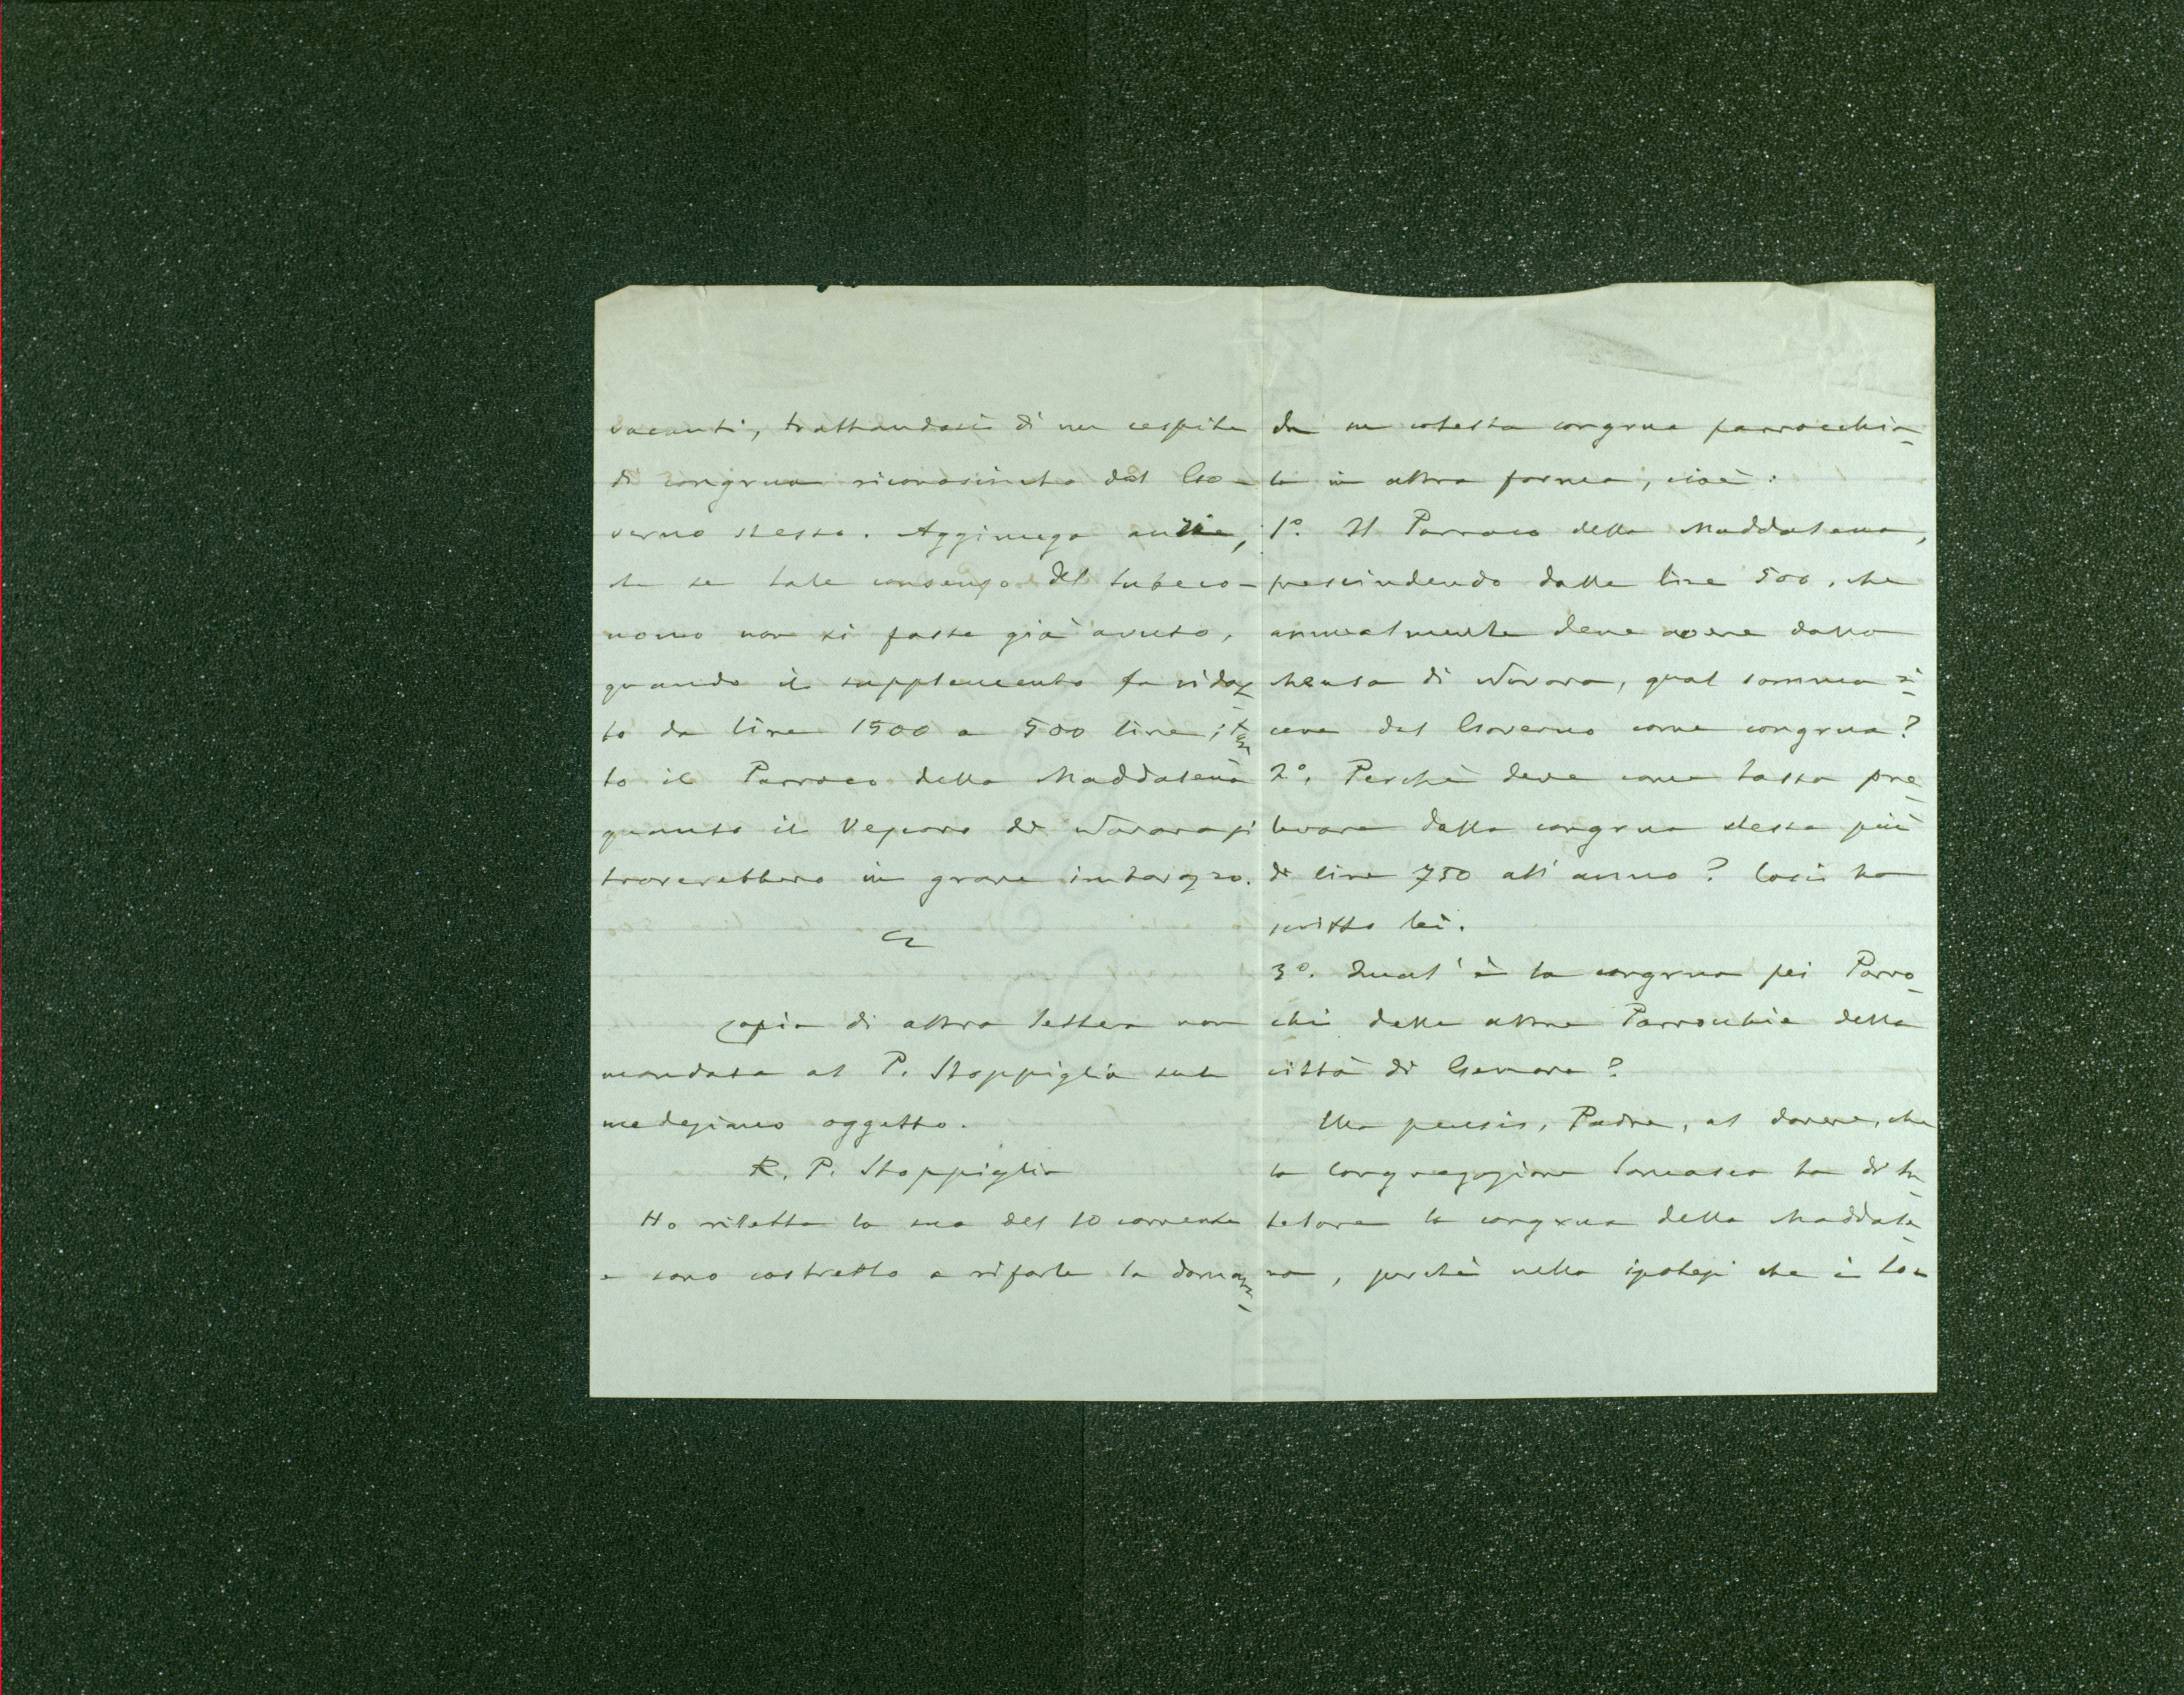 vacanti, trattandosi di un cespite
di congrua riconosciuta dal Go-
verno stesso. Aggiungo anche,
che se tale consenso del Subeco-
nomo non si fosse già avuto,
quando il supplemento fu ridot-
to da lire 1500 a 500 lire; tan-
to il Parroco della Maddalena
quanto il Vescovo di Novara si
troverebbero in grave imbarazzo.
Copia di altra lettera non
mandata al P. Stoppiglia sul
medesimo oggetto.
R. P. Stoppiglia
Ho riletta la sua del 10 corrente
e sono costretto a rifarle la doman-
da su cotesta congrua parrocchia-
le in altra forma, cioè:
1º. Il Parroco della Maddalena,
prescindendo dalle lire 500, che
annualmente deve avere dalla
Mensa di Novara, qual somma ri-
ceve dal Governo come congrua?
2º. Perchè deve come tassa pre-
levare dalla congrua stessa più
di lire 750 all'anno? Così ha
scritto lei.
3º. Qual'è la congrua pei Parro-
chi delle altre Parrocchie della
città di Genova?
Ma pensi, Padre, al dovere, che
la Congregazione Somasca ha di tu-
telare la congrua della Maddale-
na, perchè nella ipotesi che è